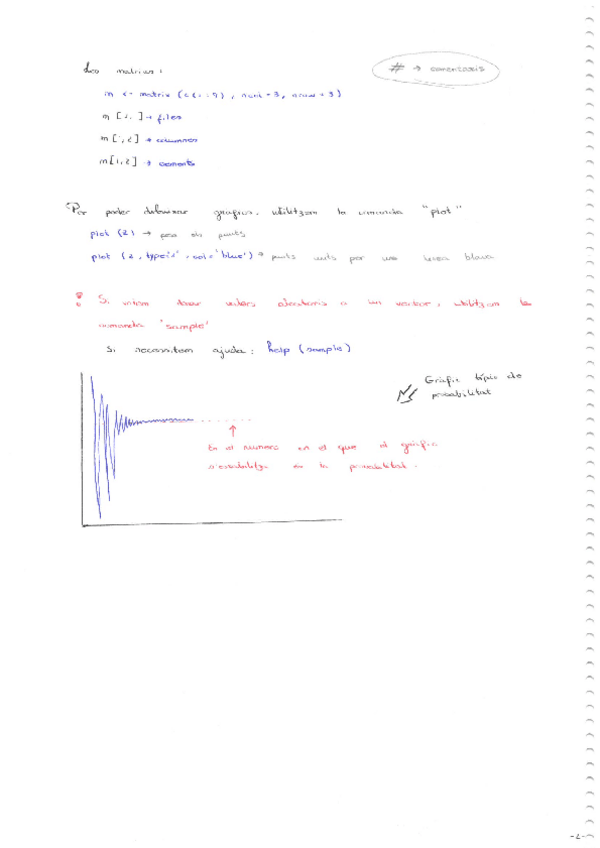 Les matrius:
# → comentaris
m <- matrix (c(1:9), ncol=3, nrow=3)
m [2, ] → files
m [ ,2] → columnes
m [1,2] → elements
Per poder dibuixar gràfics, utilitzem la comanda "plot"
plot (z) → posa els punts
plot (z, type='', col='blue') → punts units per una línea blava
Si volem donar valors aleatoris a un vector, utilitzem la
comanda 'sample'
Si necessitem ajuda: help (sample)
Gràfic típic de
probabilitat
És el número en el que el gràfic
s'estabilitza és la probabilitat.
-2-